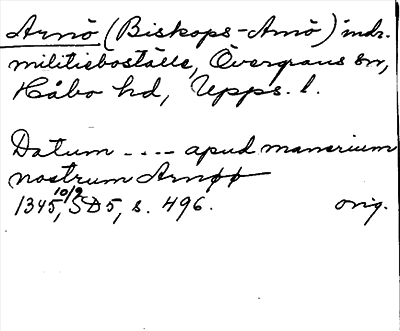 Arnö (Biskops-Arnö) indr.
militieboställe, Övergrans sn,
Håbo hd, Upps. l.
Datum ---- apud manerium
nostrum Arnøø
1345 10/9, SD5, s. 496. orig.